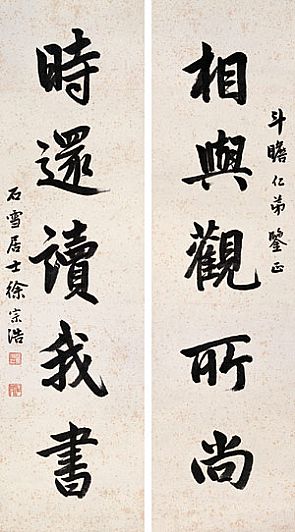 斗瞻仁弟鑒正
相與觀所尚
時還讀我書
石雪居士徐宗浩